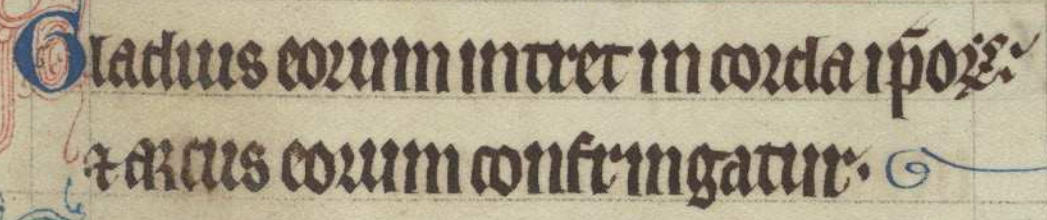 Gladius eorum intret in corda ip̄oꝝ:
⁊ arcus eorum confringatur.